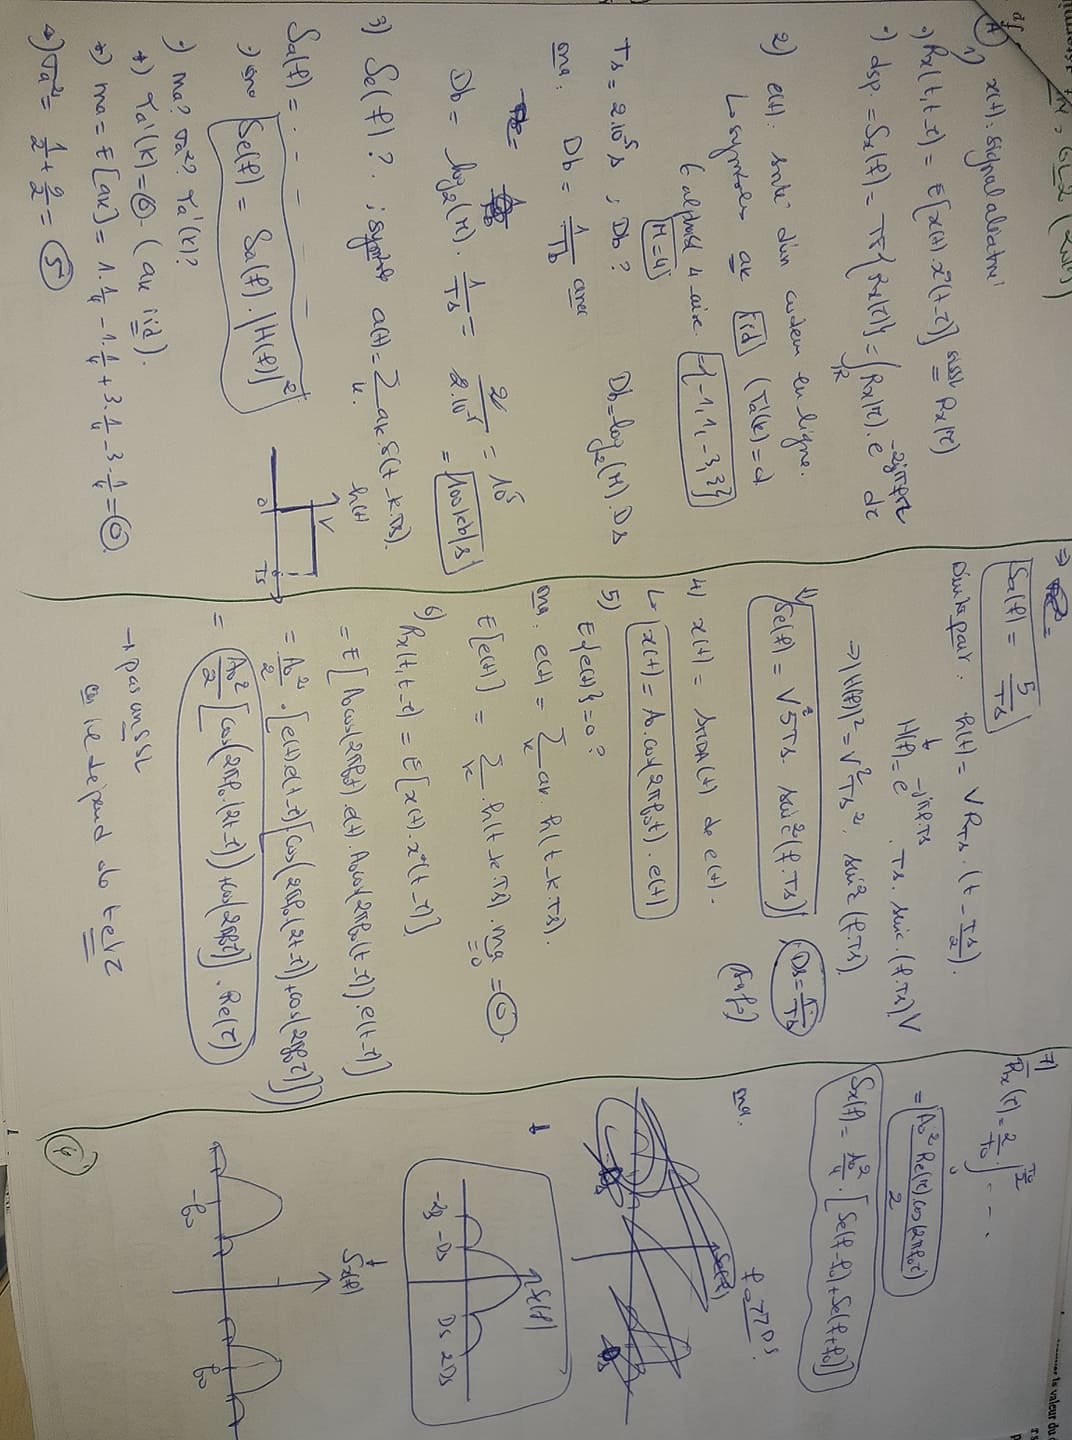 A) x(t): signal aléatoire
1)
•) Rx(t, t-τ) = E[x(t). x*(t-τ)] sissl = Rx(τ)
•) dsp. = Sx(f) = TF{Rx(τ)} = ∫_R Rx(τ). e^{-2jπfτ} dτ
2) e(t):
↳ symboles ak iid (Γa'(k) = 0)
∈ alphabet 4-aire. = {-1, 1, -3, 3}
M = 4
Ts = 2.10^-5 s ; Db ? Db = log2(M). Ds
ona: Db = 1/Tb avec
Db = log2(M). 1/Ts = 2/2.10^-5 = 10^5
= 100 kb/s
3) Se(f) ? ; a(t) = Σ_k ak. δ(t - k.Ts).
h(t)
V
0 Ts
Sa(f) = . - - - -
•) ona Se(f) = Sa(f). |H(f)|²
•) ma? σa²? Γa'(k)?
*) Γa'(k) = 0 (ak iid).
*) ma = E[ak] = 1.1/4 - 1.1/4 + 3.1/4 - 3.1/4 = 0
*) σa² = 1/2 + 9/2 = 5
⇒
Sa(f) = 5/Ts
D'autre part: h(t) = V R_Ts. (t - Ts/2).
↓
H(f) = e^{-jπf.Ts}. Ts. sinc. (f.Ts) V
⇒ |H(f)|² = V² Ts². sinc² (f.Ts).
Se(f) = V² 5Ts. sinc² (f.Ts) Ds = 1/Ts
4) x(t) = de e(t).
↳ x(t) = A0. cos(2πf0t). e(t)
5)
E{e(t)} = 0 ?
ona. e(t) = Σ_k ak. h(t - k.Ts).
E[e(t)] = Σ_k. h(t - k.Ts). ma = 0
=0
6)
Rx(t, t-τ) = E[x(t). x*(t-τ)]
= E[A0cos(2πf0t). e(t). A0cos(2πf0(t-τ)). e(t-τ)]
= A0²/2 . [e(t)e(t-τ)[cos(2πf0(2t-τ)) + cos(2πf0τ)]]
= A0²/2 [cos(2πf0.(2t-τ)) + cos(2πf0τ)]. Re(τ)
→ pas un SSL
il dépend de t et τ
7)
Rx(τ) = 2/T0 ∫_0^{T0/2} . - - .
= A0² Re(τ). cos(2πf0τ) / 2
Sx(f) = A0²/4 . [Se(f-f0) + Se(f+f0)]
ona. f0 >> Ds.
Se(f)
Se(f)
-2Ds -Ds Ds 2Ds
↓
Sx(f)
-f0 f0